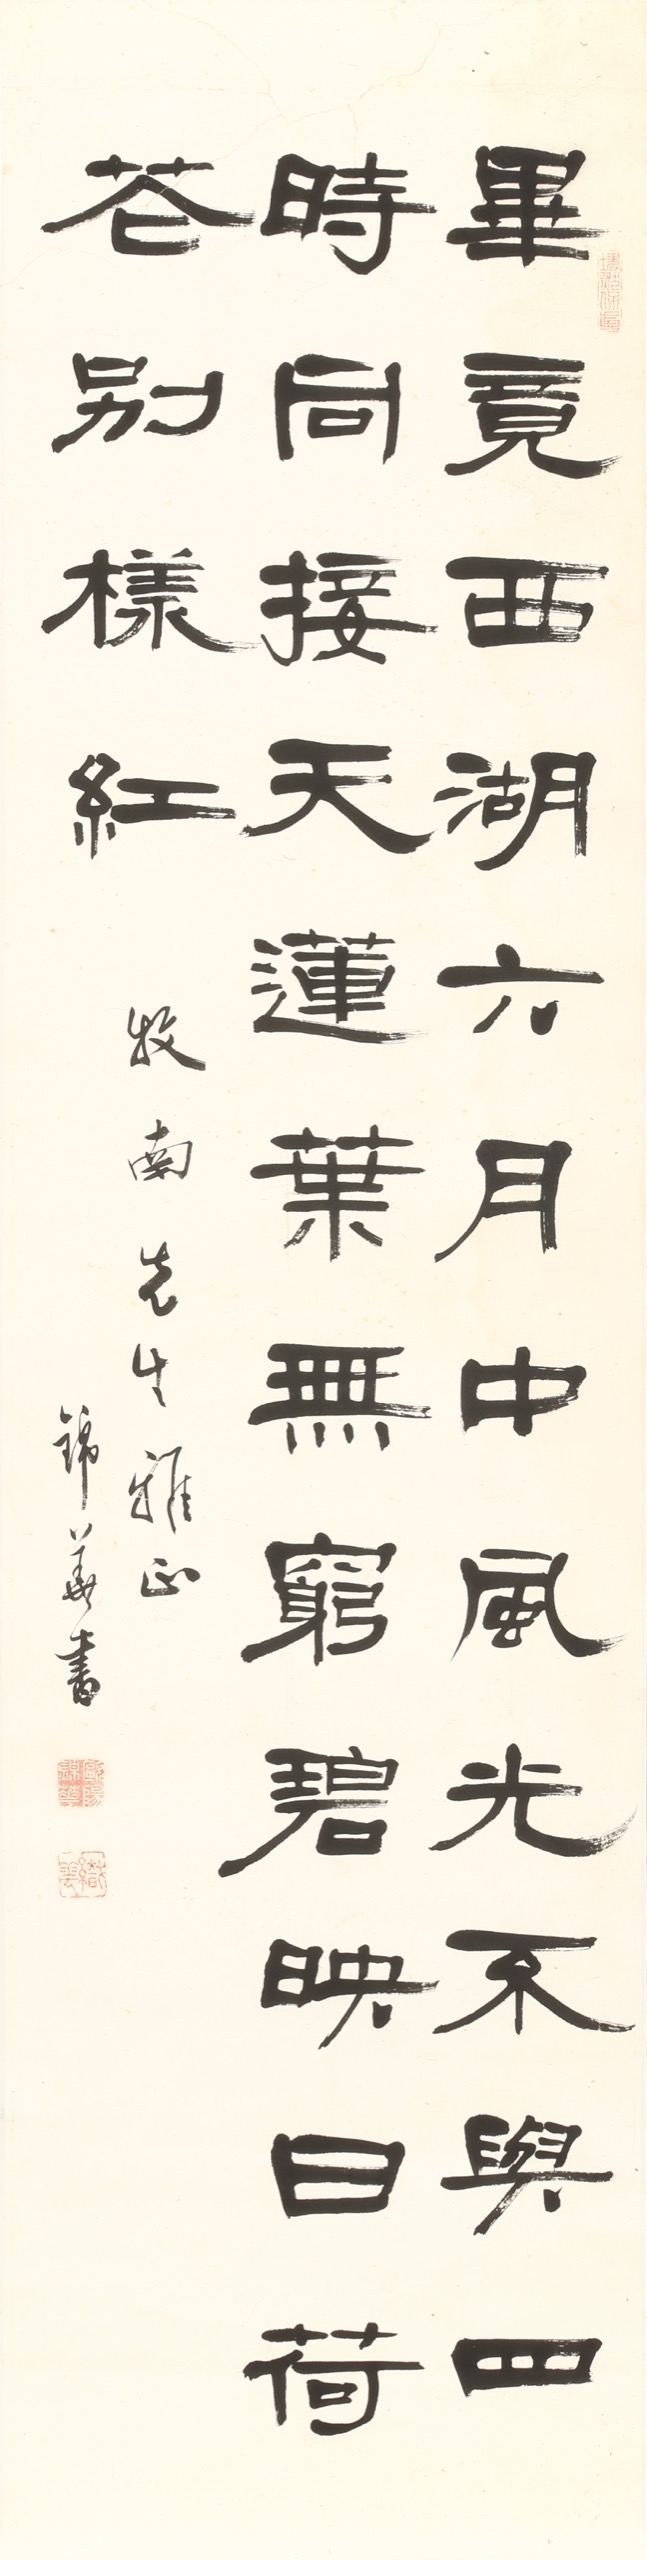 畢竟西湖六月中風光不與四
時同接天蓮葉無窮碧映日荷
花別樣紅
牧南先生雅正
錦華書
歐陽錦華